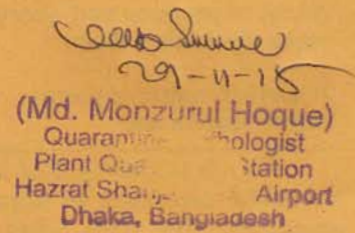 29-11-15
(Md. Monzurul Hoque)
Quaran hologist
Plant Qua Station
Hazrat Shah Airport
Dhaka, Bangladesh